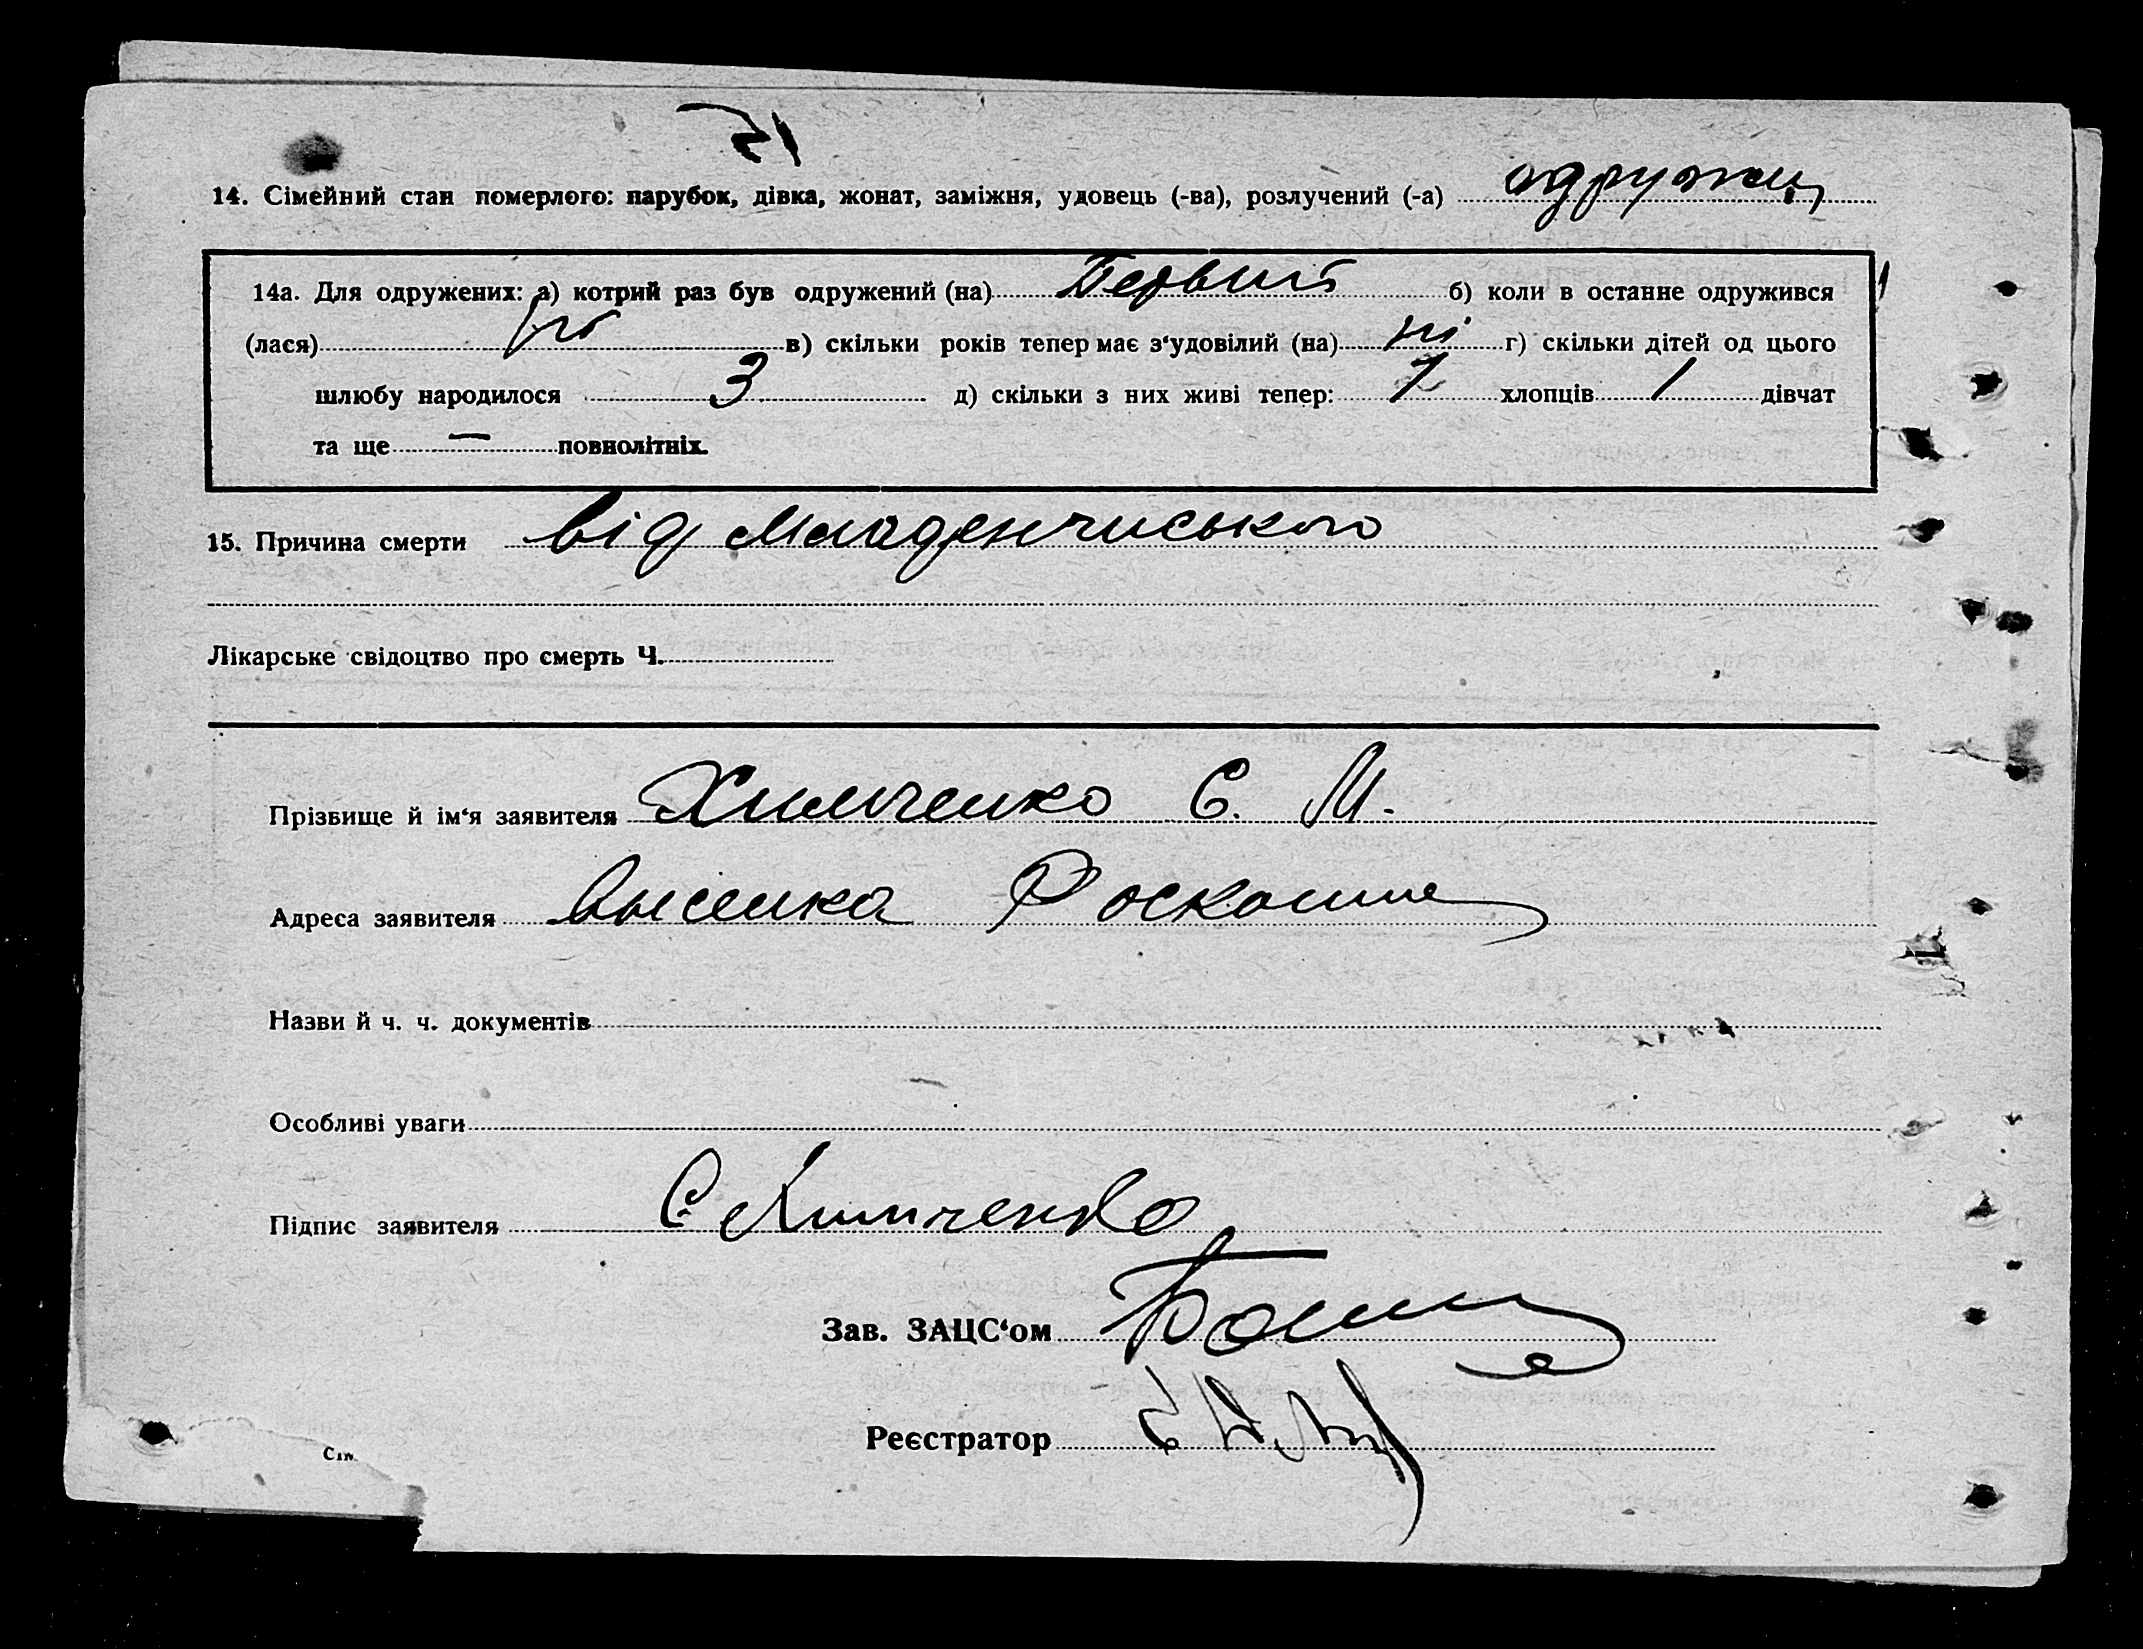 14. Сімейний стан померлого: парубок, дівка, жонат, заміжня, удовець (-ва), розлучений (-а) одружен
14а. Для одружених: а) котрий раз був одружений (на) Первий б) коли в останнє одружився
(лася) в) скільки років тепер має з‘удовілий (на) ні г) скільки дітей од цього
шлюбу народилося 3 д) скільки з них живі тепер: 1 хлопців 1 дівчат
та ще — повнолітніх.
15. Причина смерти від Младенчиського
Лікарське свідоцтво про смерть Ч.
Прізвище й ім‘я заявителя Химченко Є. М.
Адреса заявителя Высилка Роскошне
Назви й ч. ч. документів
Особливі уваги
Підпис заявителя Є Химченко
Зав. ЗАЦС‘ом
Реєстратор